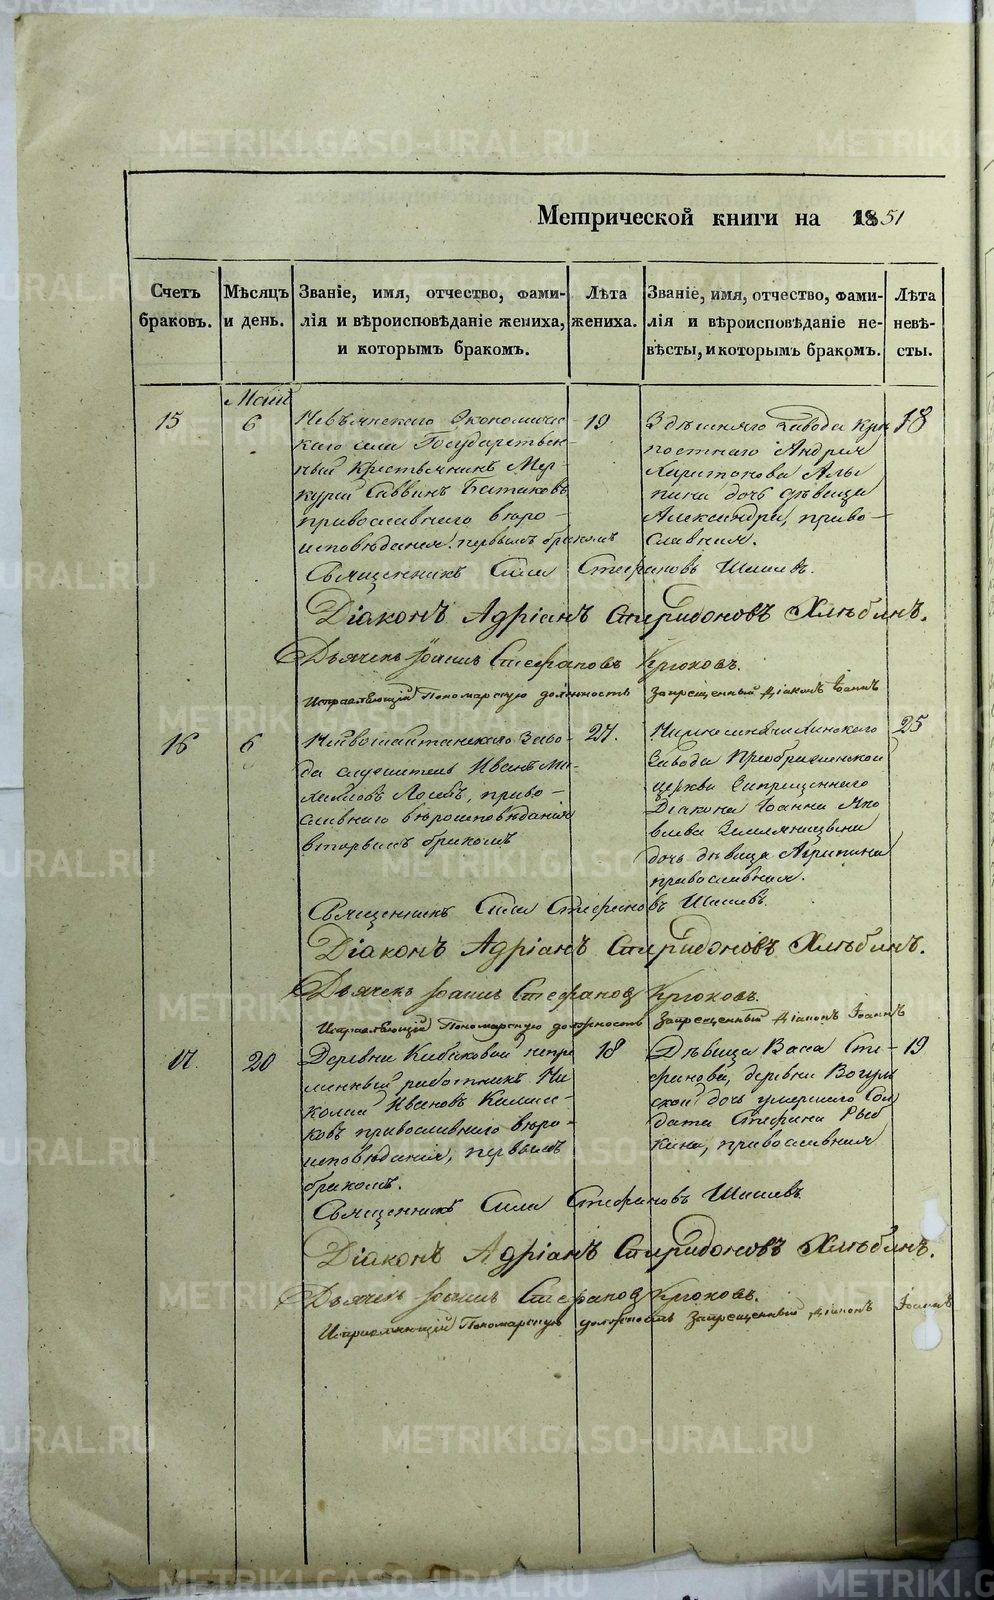 Метрической книги на 1851
Счетъ браковъ.
Мѣсяцъ и день.
Званіе, имя, отчество, фами-
лія и вѣроисповѣданіе жениха,
и которымъ бракомъ.
Лѣта жениха.
Званіе, имя, отчество, фами-
лія и вѣроисповѣданіе не-
вѣсты, и которымъ бракомъ.
Лѣта невѣ-
сты.
Маій
15
6
Невьянскаго Экономичес
каго села Государствен-
ный крестьянинъ Мер-
курій Саввинъ Батаковъ
православнаго вѣро-
исповѣданія. первымъ бракомъ
19
Здѣшняго Завода крѣ
постнаго Андрея
Харитонова
дочь дѣвица
Александра, право-
славная.
18
Священникъ Сила Стефановъ Шишевъ.
Діаконъ Адріанъ Спиридоновъ Хлѣбинъ.
Дьячекъ Іоаннъ Стефановъ Крюковъ.
Исправляющій Пономарскую должность Запрещенный Діаконъ Іоаннъ
16
6
Завo-
да служитель Иванъ Ми-
хайловъ Лосевъ, право-
славнаго вѣроисповѣданія
вторымъ бракомъ
27.
Завода Преображенской
церкви Запрещеннаго
Діакона Іоанна Яко
влева
дочь дѣвица Агрипина
православная.
25
Священникъ Сила Стефановъ Шишевъ.
Діаконъ Адріанъ Спиридоновъ Хлѣбинъ.
Дьячекъ Іоаннъ Стефановъ Крюковъ.
Исправляющій Пономарскую должность Запрещенный Діаконъ Іоаннъ
17.
20
Деревни непре
мѣнный работникъ Ни
колай Ивановъ
ковъ православнаго вѣро-
исповѣданія, первымъ
бракомъ.
18
Дѣвица Васа Сте-
фанова, деревни Вогуль
ской дочь умершаго Сол
дата Стефана Рыб
кина, православная
19
Священникъ Сила Стефановъ Шишевъ
Діаконъ Адріанъ Спиридоновъ Хлѣбинъ.
Дьячекъ Іоаннъ Стефановъ Крюковъ.
Исправляющій Пономарскую должность Запрещенный Діаконъ Іоаннъ
METRIKI.GASO-URAL.RU